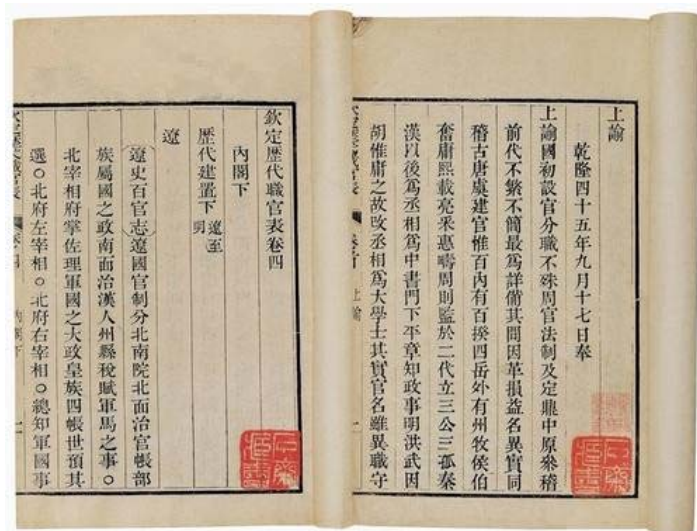 上諭
乾隆四十五年九月十七日奉
上諭國初設官分職不殊周官法制及定鼎中原參稽
前代不繁不簡最為詳備其間因革損益名異實同
稽古唐虞建官惟百內有百揆四岳外有州牧侯伯
奮庸熙載亮采惠疇周則監於二代立三公三孤秦
漢以後為丞相為中書門下平章知政事明洪武因
胡惟庸之故改丞相為大學士其實官名雖異職守
卷首
上諭
一
欽定歷代職官表卷四
內閣下
歷代建置下 遼至明
遼
遼史百官志遼國官制分北南院北面治官帳部
族屬國之政南面治漢人州縣稅賦軍馬之事○
北宰相府掌佐理軍國之大政皇族四帳世預其
選○北府左宰相○北府右宰相○總知軍國事
內閣下